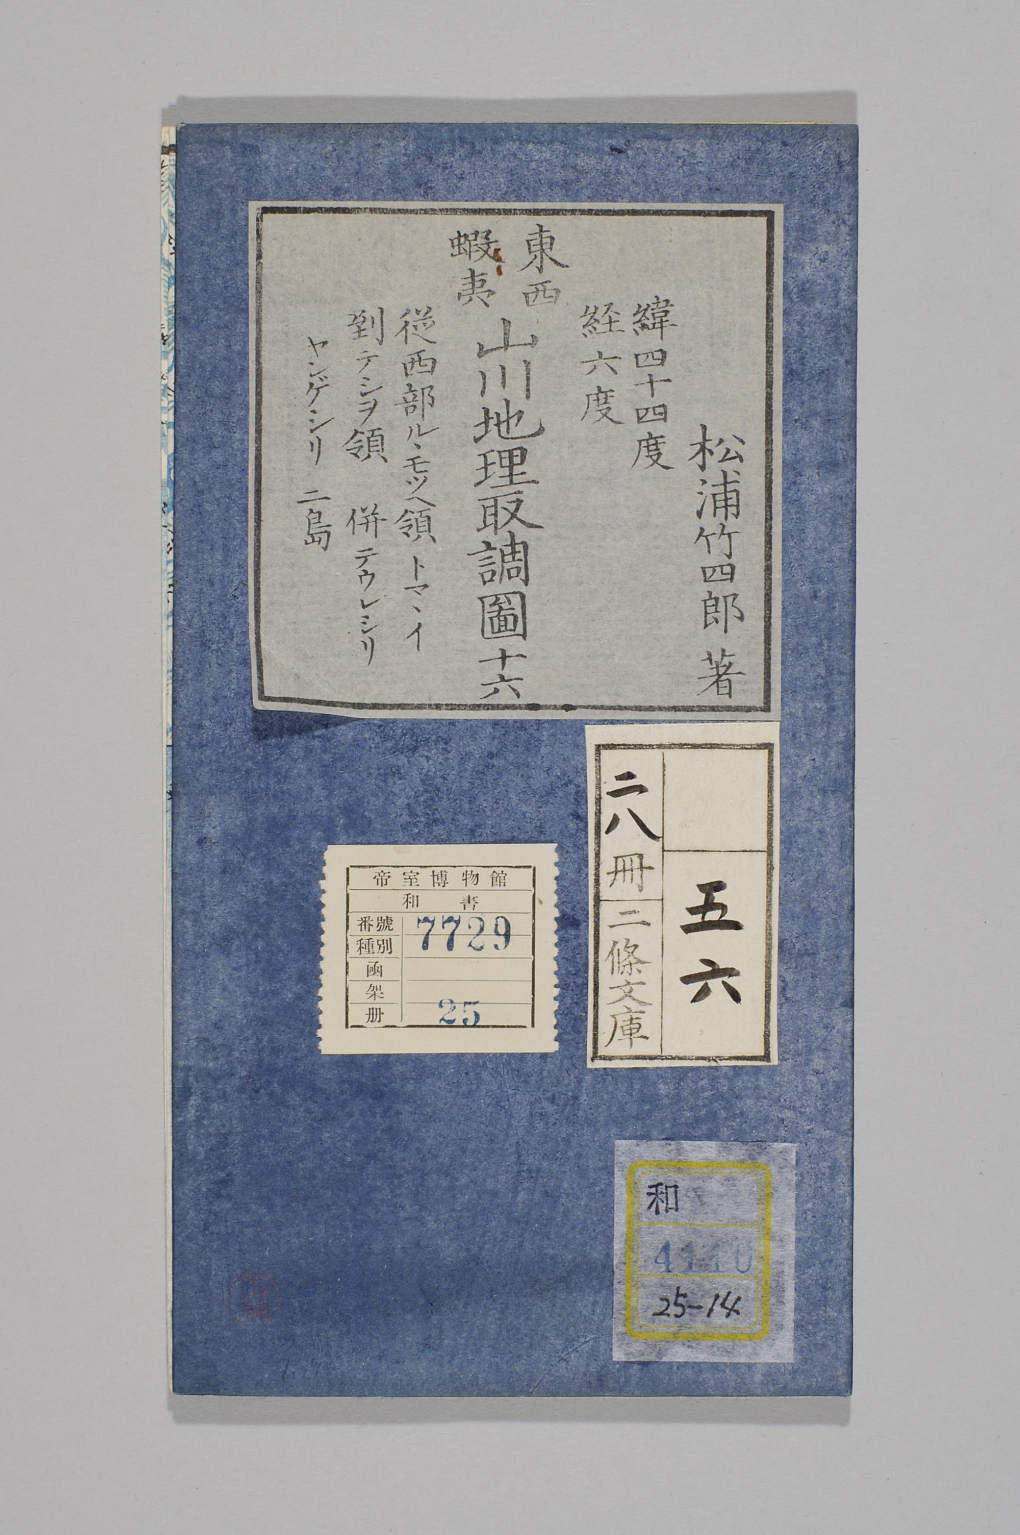 松浦竹四郎 著
緯四十四度
経六度
東西
蝦夷
山川地理取調圖十六
従西部ル、モツヘ領 トマヽイ
到テシヲ領 併テウレシリ
ヤンゲシリ 二島
五六
二八冊
二條文庫
帝室博物館
和書
番號 7729
種別
函
架
册 25
和
4110
25-14